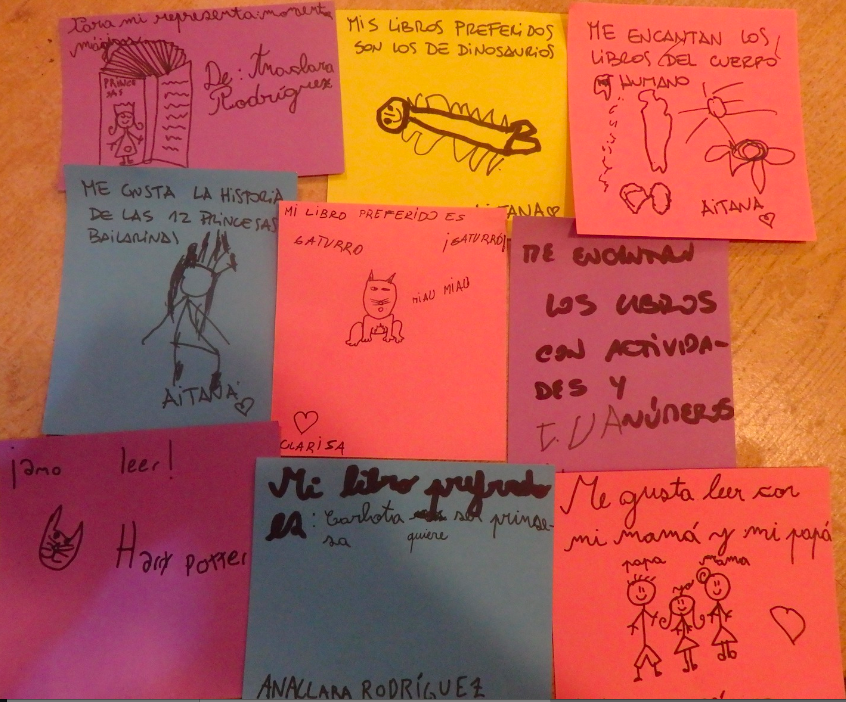 Para mi representa: momentos
mágicos
De: Anaclara
Rodríguez
PRINCE
SAS
MIS LIBROS PREFERIDOS
SON LOS DE DINOSAURIOS
AITANA
ME ENCANTAN LOS
LIBROS DEL CUERPO
HUMANO
AITANA
ME GUSTA LA HISTORIA
DE LAS 12 PRINCESAS
BAILARINAS
AITANA
MI LIBRO PREFERIDO ES
GATURRO ¡GATURRO!
MIAU MIAU
CLARISA
ME ENCANTAN
LOS LIBROS
CON ACTIVIDA-
DES Y
NÚMEROS
¡amo leer!
Harry Potter
Mi libro prefrado
es: Carlota quiere ser prinse-
sa
ANACLARA RODRÍGUEZ
Me gusta leer con
mi mamá y mi papá
papa yo mama